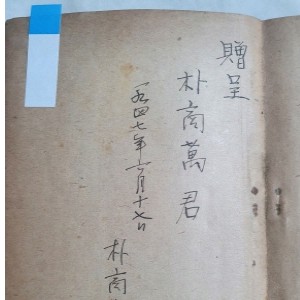 贈呈
朴商萬君
一九四七年六月十七日
朴商